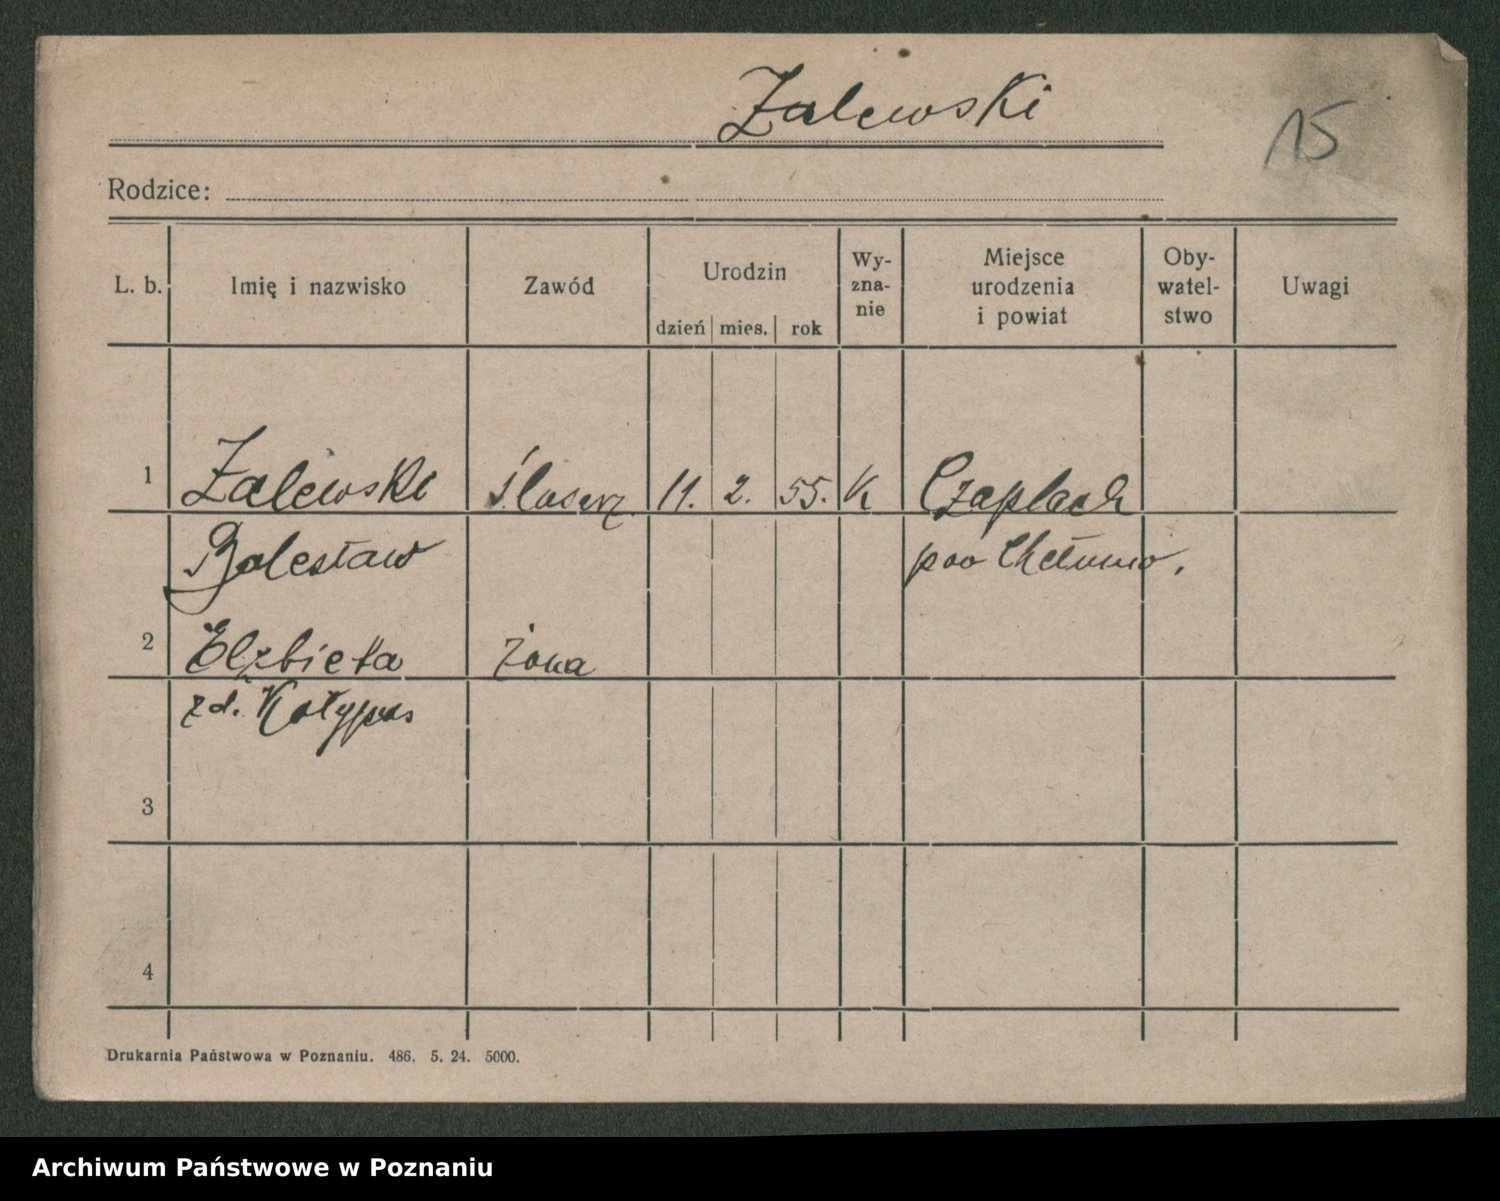 Zalewski
15
Rodzice:
L. b. Imię i nazwisko Zawód Urodzin dzień mies. rok Wy-zna-nie Miejsce urodzenia i powiat Oby-watel-stwo Uwagi
1 Zalewski ślusarz 11. 2. 55. K Czaplach
Bolesław pow Chełmno.
2 Elżbieta żona
zd.
3
4
Drukarnia Państwowa w Poznaniu. 486. 5. 24. 5000.
Archiwum Państwowe w Poznaniu